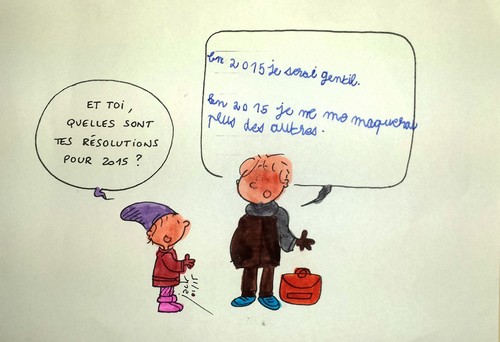 ET TOI,
QUELLES SONT
TES RÉSOLUTIONS
POUR 2015 ?
En 2015 je serai gentil.
En 2015 je ne me moquerai
plus des autres.
jack
01/15